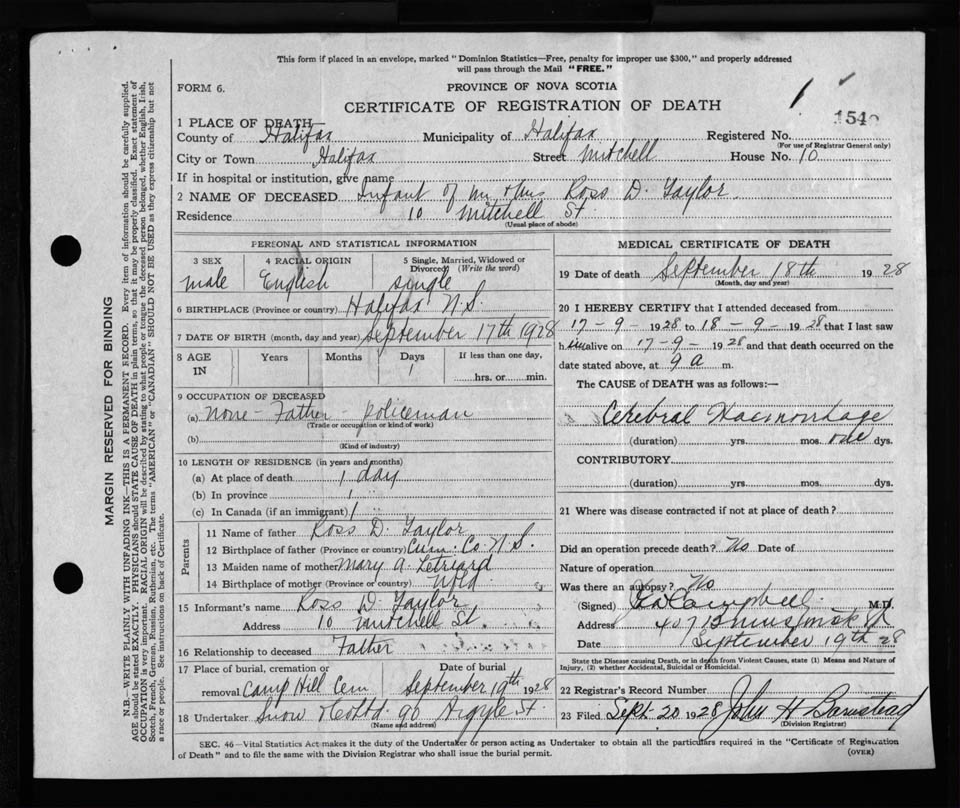 This form if placed in an envelope, marked "Dominion Statistics—Free, penalty for improper use $300," and properly addressed
will pass through the Mail "FREE."
FORM 6.
PROVINCE OF NOVA SCOTIA
CERTIFICATE OF REGISTRATION OF DEATH
1
154
1 PLACE OF DEATH
County of Halifax Municipality of Halifax Registered No.
(For use of Registrar General only)
City or Town Halifax Street Mitchell House No. 10
If in hospital or institution, give name
2 NAME OF DECEASED Infant of Mr & Mrs Ross D. Taylor
Residence 10 Mitchell St.
(Usual place of abode)
PERSONAL AND STATISTICAL INFORMATION
3 SEX 4 RACIAL ORIGIN 5 Single, Married, Widowed or
Divorced (Write the word)
male English single
6 BIRTHPLACE (Province or country) Halifax N.S.
7 DATE OF BIRTH (month, day and year) September 17th 1928
8 AGE Years Months Days If less than one day,
IN 1 hrs. or min.
9 OCCUPATION OF DECEASED
(a) None - Father - Policeman
(Trade or occupation or kind of work)
(b)
(Kind of industry)
10 LENGTH OF RESIDENCE (in years and months)
(a) At place of death 1 day
(b) In province 1 "
(c) In Canada (if an immigrant) 1 "
Parents
11 Name of father Ross D. Taylor
12 Birthplace of father (Province or country) Cum. Co. N.S.
13 Maiden name of mother Mary A.
14 Birthplace of mother (Province or country) Nfld
15 Informant's name Ross D. Taylor
Address 10 Mitchell St.
16 Relationship to deceased Father
17 Place of burial, cremation or Date of burial
removal Camp Hill Cem September 19th 1928
18 Undertaker Snow & Co Ltd. 90 Argyle St
(Name and address)
MEDICAL CERTIFICATE OF DEATH
19 Date of death September 18th 1928
(Month, day and year)
20 I HEREBY CERTIFY that I attended deceased from
17-9-1928 to 18-9-1928 that I last saw
him alive on 17-9-1928 and that death occurred on the
date stated above, at 9 a m.
The CAUSE of DEATH was as follows:—
Cerebral Haemorrhage
(duration) yrs. mos. one dys.
CONTRIBUTORY
(duration) yrs. mos. dys.
21 Where was disease contracted if not at place of death?
Did an operation precede death? No Date of
Nature of operation
Was there an autopsy? No
(Signed) Campbell M.D.
Address 407 Brunswick St
Date September 19th 28
State the Disease causing Death, or in death from Violent Causes, state (1) Means and Nature of
Injury, (2) whether Accidental, Suicidal or Homicidal.
22 Registrar's Record Number
23 Filed Sept. 20 1928 John H Barnstead
(Division Registrar)
SEC. 46—Vital Statistics Act makes it the duty of the Undertaker or person acting as Undertaker to obtain all the particulars required in the "Certificate of Registration
of Death" and to file the same with the Division Registrar who shall issue the burial permit. (OVER)
MARGIN RESERVED FOR BINDING
N.B.—WRITE PLAINLY WITH UNFADING INK—THIS IS A PERMANENT RECORD. Every item of information should be carefully supplied.
AGE should be stated EXACTLY. PHYSICIANS should STATE CAUSE OF DEATH in plain terms, so that it may be properly classified. Exact statement of
OCCUPATION is very important. RACIAL ORIGIN will be described by stating to what people or tongue the deceased person belonged, whether English, Irish,
Scotch, French, German, Russian, Ruthenian, etc. The terms "AMERICAN" or "CANADIAN" SHOULD NOT BE USED as they express citizenship but not
a race or people. See instructions on back of Certificate.